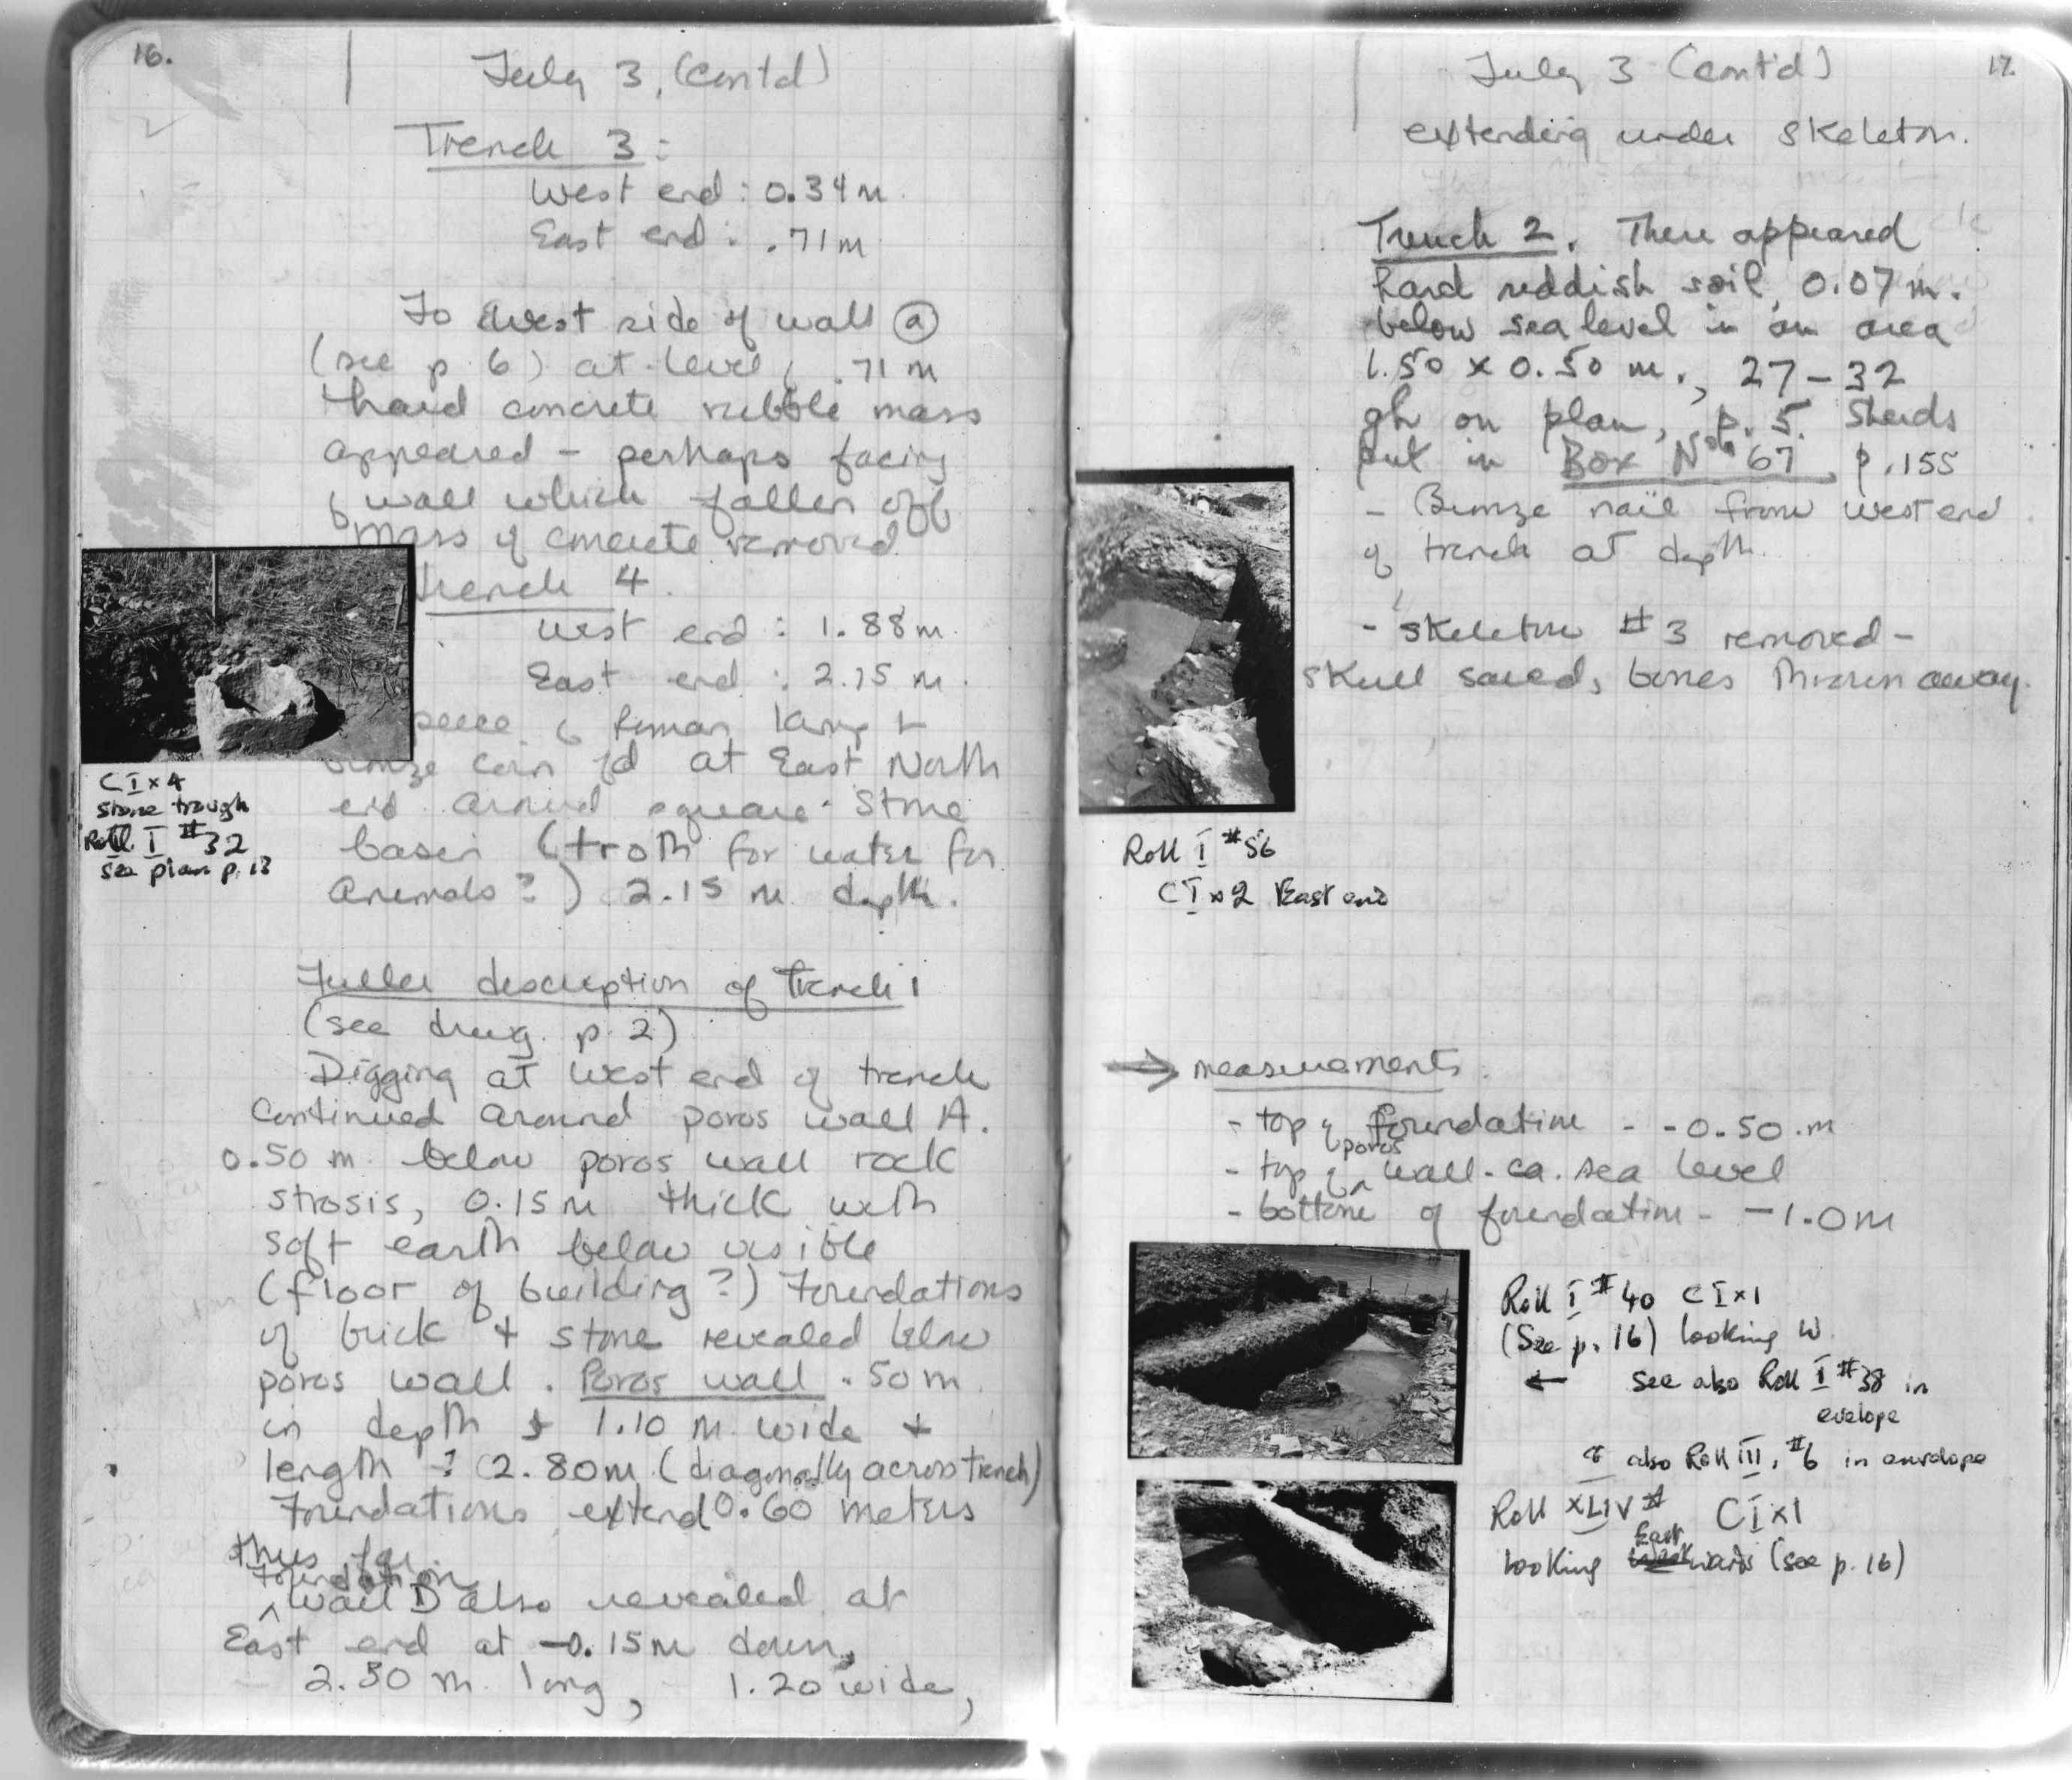 16.
July 3, (contd)
Trench 3:
West end: 0.34 m.
East end: .71 m
To West side of wall ⓐ
(see p. 6) at level, .71 m
hard concrete rubble mass
appeared – perhaps facing
of wall which fallen off
mass of concrete removed
Trench 4.
West end: 1.88 m.
East end: 2.15 m.
piece of Roman lamp +
bronze coin fd at East North
end around square stone
basin (troth for water for
animals?) 2.15 m depth.
C I x 4
stone trough
Roll I #32
see plan p. 13
Fuller description of Trench 1
(see drwg. p. 2)
Digging at West end of trench
continued around poros wall A.
0.50 m below poros wall rock
strosis, 0.15 m thick with
soft earth below visible
(floor of building?) Foundations
of brick + stone revealed below
poros wall. Poros wall .50 m.
in depth + 1.10 m. wide +
length ? 2.80 m. (diagonally across trench)
Foundations extend 0.60 meters
thus far.
foundation
^ Wall D also revealed at
East end at –0.15 m down,
2.30 m. long, 1.20 wide,
July 3 (cont'd)
17.
extending under skeleton.
Trench 2. There appeared
hard reddish soil, 0.07 m.
below sea level in an area
1.50 x 0.50 m., 27–32
gh on plan, p. 5. Sherds
put in Box No. 67, p. 155
– Bronze nail from west end
of trench at depth.
– skeleton #3 removed –
skull saved, bones thrown away.
Roll I #56
C I x 2 East end
→ measurements:
– top of foundation – –0.50 m
– top of ^poros wall – ca. sea level
– bottom of foundation – –1.0 m
Roll I #40 C I x 1
(See p. 16) looking W.
← see also Roll I #38 in
evelope
& also Roll III, #6 in envelope
Roll XLIV # C I x 1
looking East wards (see p. 16)